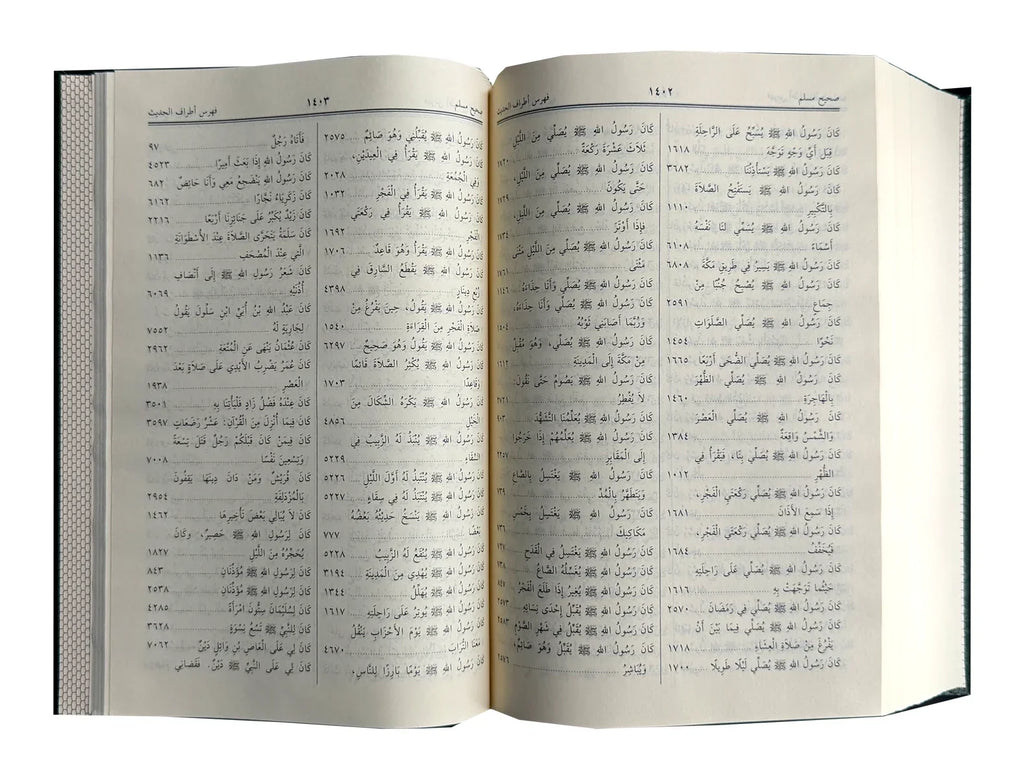 صحيح مسلم
١٤٠٢
فهرس أطراف الحديث
كَانَ رَسُولُ اللهِ ﷺ يُسَبِّحُ عَلَى الرَّاحِلَةِ
قِبَلَ أَيِّ وَجْهٍ تَوَجَّهَ ١٦١٨
كَانَ رَسُولُ اللهِ ﷺ يَسْتَأْذِنُنَا ٣٦٨٢
كَانَ رَسُولُ اللهِ ﷺ يَسْتَفْتِحُ الصَّلَاةَ
بِالتَّكْبِيرِ ١١١٠
كَانَ رَسُولُ اللهِ ﷺ يُسَمِّي لَنَا نَفْسَهُ
أَسْمَاءً ٦١٠٨
كَانَ رَسُولُ اللهِ ﷺ يَسِيرُ فِي طَرِيقِ مَكَّةَ ٦٨٠٨
كَانَ رَسُولُ اللهِ ﷺ يُصْبِحُ جُنُبًا مِنْ
جِمَاعٍ ٢٥٩١
كَانَ رَسُولُ اللهِ ﷺ يُصَلِّي الصَّلَوَاتِ
نَحْوًا ١٤٥٤
كَانَ رَسُولُ اللهِ ﷺ يُصَلِّي الضُّحَى أَرْبَعًا ١٦٦٥
كَانَ رَسُولُ اللهِ ﷺ يُصَلِّي الظُّهْرَ
بِالْهَاجِرَةِ ١٤٦٠
كَانَ رَسُولُ اللهِ ﷺ يُصَلِّي الْعَصْرَ
وَالشَّمْسُ وَاقِعَةٌ ١٣٨٤
كَانَ رَسُولُ اللهِ ﷺ يُصَلِّي بِنَا، فَيَقْرَأُ فِي
الظُّهْرِ ١٠١٢
كَانَ رَسُولُ اللهِ ﷺ يُصَلِّي رَكْعَتَيِ الْفَجْرِ،
إِذَا سَمِعَ الْأَذَانَ ١٦٨١
كَانَ رَسُولُ اللهِ ﷺ يُصَلِّي رَكْعَتَيِ الْفَجْرِ،
فَيُخَفِّفُ ١٦٨٤
كَانَ رَسُولُ اللهِ ﷺ يُصَلِّي عَلَى رَاحِلَتِهِ
حَيْثُمَا تَوَجَّهَتْ بِهِ ١٦١٦
كَانَ رَسُولُ اللهِ ﷺ يُصَلِّي فِي رَمَضَانَ ٢٥٧٠
كَانَ رَسُولُ اللهِ ﷺ يُصَلِّي فِيمَا بَيْنَ أَنْ
يَفْرُغَ مِنْ صَلَاةِ الْعِشَاءِ ١٧١٨
كَانَ رَسُولُ اللهِ ﷺ يُصَلِّي لَيْلًا طَوِيلًا ١٧٠٠
كَانَ رَسُولُ اللهِ ﷺ يُصَلِّي مِنَ اللَّيْلِ
ثَلَاثَ عَشْرَةَ رَكْعَةً
كَانَ رَسُولُ اللهِ ﷺ يُصَلِّي مِنَ اللَّيْلِ،
حَتَّى يَكُونَ
كَانَ رَسُولُ اللهِ ﷺ يُصَلِّي مِنَ اللَّيْلِ،
فَإِذَا أَوْتَرَ
كَانَ رَسُولُ اللهِ ﷺ يُصَلِّي مِنَ اللَّيْلِ مَثْنَى
مَثْنَى
كَانَ رَسُولُ اللهِ ﷺ يُصَلِّي وَأَنَا حِذَاءَهُ
كَانَ رَسُولُ اللهِ ﷺ يُصَلِّي وَأَنَا حِذَاءَهُ،
وَرُبَّمَا أَصَابَنِي ثَوْبُهُ
كَانَ رَسُولُ اللهِ ﷺ يُصَلِّي، وَهُوَ مُقْبِلٌ
مِنْ مَكَّةَ إِلَى الْمَدِينَةِ
كَانَ رَسُولُ اللهِ ﷺ يَصُومُ حَتَّى نَقُولَ:
لَا يُفْطِرُ
كَانَ رَسُولُ اللهِ ﷺ يُعَلِّمُنَا التَّشَهُّدَ
كَانَ رَسُولُ اللهِ ﷺ يُعَلِّمُهُمْ إِذَا خَرَجُوا
إِلَى الْمَقَابِرِ
كَانَ رَسُولُ اللهِ ﷺ يَغْتَسِلُ بِالصَّاعِ
وَيَتَطَهَّرُ بِالْمُدِّ
كَانَ رَسُولُ اللهِ ﷺ يَغْتَسِلُ بِخَمْسِ
مَكَاكِيكَ
كَانَ رَسُولُ اللهِ ﷺ يَغْتَسِلُ فِي الْقَدَحِ
كَانَ رَسُولُ اللهِ ﷺ يُغَسِّلُهُ الصَّاعُ
كَانَ رَسُولُ اللهِ ﷺ يُغِيرُ إِذَا طَلَعَ الْفَجْرُ
كَانَ رَسُولُ اللهِ ﷺ يُقَبِّلُ إِحْدَى نِسَائِهِ
كَانَ رَسُولُ اللهِ ﷺ يُقَبِّلُ فِي شَهْرِ الصَّوْمِ
كَانَ رَسُولُ اللهِ ﷺ يُقَبِّلُ وَهُوَ صَائِمٌ،
وَيُبَاشِرُ ٢٥٧٦
صحيح مسلم
١٤٠٣
فهرس أطراف الحديث
كَانَ رَسُولُ اللهِ ﷺ يُقَبِّلُنِي وَهُوَ صَائِمٌ ٢٥٧٥
كَانَ رَسُولُ اللهِ ﷺ يَقْرَأُ فِي الْعِيدَيْنِ،
وَفِي الْجُمُعَةِ ٢٠٢٨
كَانَ رَسُولُ اللهِ ﷺ يَقْرَأُ فِي الْفَجْرِ ١٠٣٢
كَانَ رَسُولُ اللهِ ﷺ يَقْرَأُ فِي رَكْعَتَيِ
الْفَجْرِ ١٦٩٢
كَانَ رَسُولُ اللهِ ﷺ يَقْرَأُ وَهُوَ قَاعِدٌ ١٧٠٦
كَانَ رَسُولُ اللهِ ﷺ يَقْطَعُ السَّارِقَ فِي
رُبْعِ دِينَارٍ ٤٣٩٨
كَانَ رَسُولُ اللهِ ﷺ يَقُولُ، حِينَ يَفْرُغُ مِنْ
صَلَاةِ الْفَجْرِ مِنَ الْقِرَاءَةِ ١٥٤٠
كَانَ رَسُولُ اللهِ ﷺ يَقُولُ وَهُوَ صَحِيحٌ ٦٢٩٧
كَانَ رَسُولُ اللهِ ﷺ يُكْثِرُ الصَّلَاةَ قَائِمًا
وَقَاعِدًا ١٧٠٣
كَانَ رَسُولُ اللهِ ﷺ يَكْرَهُ الشِّكَالَ مِنَ
الْخَيْلِ ٤٨٥٦
كَانَ رَسُولُ اللهِ ﷺ يُنْبَذُ لَهُ الزَّبِيبُ فِي
السِّقَاءِ ٥٢٢٩
كَانَ رَسُولُ اللهِ ﷺ يُنْتَبَذُ لَهُ أَوَّلَ اللَّيْلِ ٥٢٢٦
كَانَ رَسُولُ اللهِ ﷺ يُنْتَبَذُ لَهُ فِي سِقَاءٍ ٥٢٢٧
كَانَ رَسُولُ اللهِ ﷺ يَنْسَخُ حَدِيثُهُ بَعْضُهُ
بَعْضًا ٧٧٧
كَانَ رَسُولُ اللهِ ﷺ يُنْقَعُ لَهُ الزَّبِيبُ ٥٢٢٨
كَانَ رَسُولُ اللهِ ﷺ يُهْدِي مِنَ الْمَدِينَةِ ٣١٩٤
كَانَ رَسُولُ اللهِ ﷺ يُهَلِّلُ ١٣٤٤
كَانَ رَسُولُ اللهِ ﷺ يُوتِرُ عَلَى رَاحِلَتِهِ ١٦١٧
كَانَ رَسُولُ اللهِ ﷺ يَوْمَ الْأَحْزَابِ يَنْقُلُ
مَعَنَا التُّرَابَ ٤٦٧٠
كَانَ رَسُولُ اللهِ ﷺ يَوْمًا بَارِزًا لِلنَّاسِ،
فَأَتَاهُ رَجُلٌ ٩٧
كَانَ رَسُولُ اللهِ إِذَا بَعَثَ أَمِيرًا ٤٥٢٣
كَانَ رَسُولُ اللهِ يَنْضَجِعُ مَعِي وَأَنَا حَائِضٌ ٦٨٢
كَانَ زَكَرِيَّاءُ نَجَّارًا ٦١٦٢
كَانَ زَيْدٌ يُكَبِّرُ عَلَى جَنَائِزِنَا أَرْبَعًا ٢٢١٦
كَانَ سَلَمَةُ يَتَحَرَّى الصَّلَاةَ عِنْدَ الْأُسْطُوَانَةِ
الَّتِي عِنْدَ الْمُصْحَفِ ١١٣٦
كَانَ شَعَرُ رَسُولِ اللهِ ﷺ إِلَى أَنْصَافِ
أُذُنَيْهِ ٦٠٦٩
كَانَ عَبْدُ اللهِ بْنُ أُبَيِّ ابْنِ سَلُولَ يَقُولُ
لِجَارِيَةٍ لَهُ ٧٥٥٢
كَانَ عُثْمَانُ يَنْهَى عَنِ الْمُتْعَةِ ٢٩٦٢
كَانَ عُمَرُ يَضْرِبُ الْأَيْدِيَ عَلَى صَلَاةٍ بَعْدَ
الْعَصْرِ ١٩٣٨
كَانَ عِنْدَهُ فَضْلُ زَادٍ فَلْيَأْتِنَا بِهِ ٣٥٠١
كَانَ فِيمَا أُنْزِلَ مِنَ الْقُرْآنِ: عَشْرُ رَضَعَاتٍ ٣٥٩٧
كَانَ فِيمَنْ كَانَ قَبْلَكُمْ رَجُلٌ قَتَلَ تِسْعَةً
وَتِسْعِينَ نَفْسًا ٧٠٠٨
كَانَ قُرَيْشٌ وَمَنْ دَانَ دِينَهَا يَقِفُونَ
بِالْمُزْدَلِفَةِ ٢٩٥٤
كَانَ لَا يُبَالِي بَعْضَ تَأْخِيرِهَا ١٤٦٢
كَانَ لِرَسُولِ اللهِ ﷺ حَصِيرٌ، وَكَانَ
يُحَجِّرُهُ مِنَ اللَّيْلِ ١٨٢٧
كَانَ لِرَسُولِ اللهِ ﷺ مُؤَذِّنَانِ ٨٤٣
كَانَ لِرَسُولِ اللهِ ﷺ مُؤَذِّنَانِ ٢٥٣٨
كَانَ لِسُلَيْمَانَ سِتُّونَ امْرَأَةً ٤٢٨٥
كَانَ لِلنَّبِيِّ ﷺ تِسْعُ نِسْوَةٍ ٣٦٢٨
كَانَ لِي عَلَى الْعَاصِ بْنِ وَائِلٍ دَيْنٌ ٧٠٦٢
كَانَ لِي عَلَى النَّبِيِّ ﷺ دَيْنٌ، فَقَضَانِي